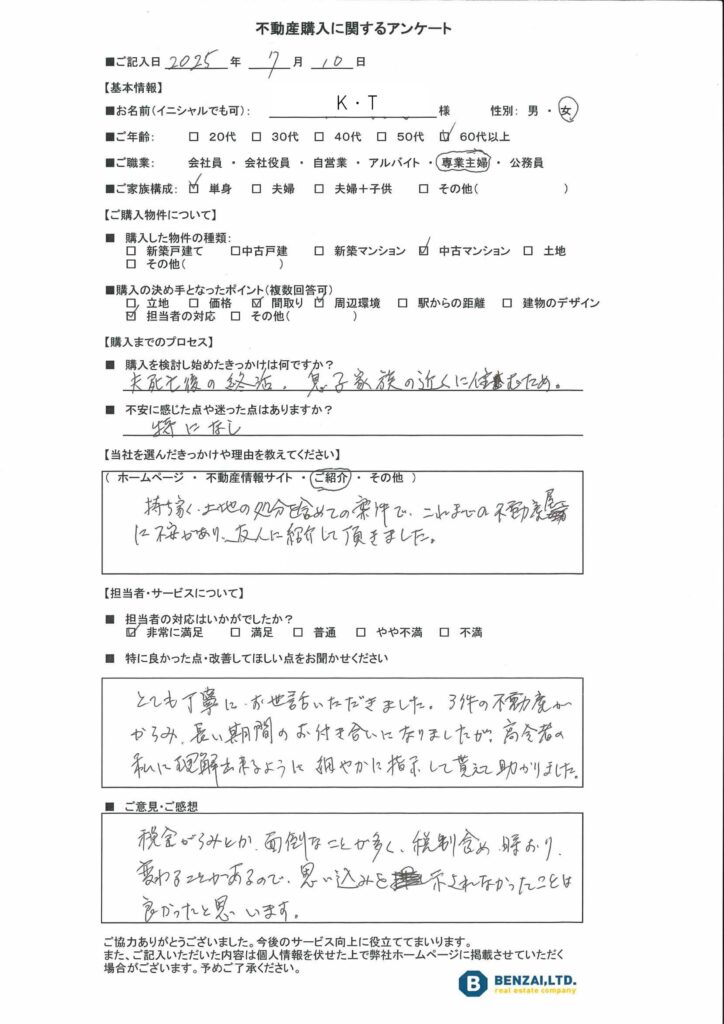 不動産購入に関するアンケート
■ご記入日 2025 年 7 月 10 日
【基本情報】
■お名前(イニシャルでも可): K・T 様 性別: 男 ・ 女
■ご年齢: □ 20代 □ 30代 □ 40代 □ 50代 ☑ 60代以上
■ご職業: 会社員 ・ 会社役員 ・ 自営業 ・ アルバイト ・ 専業主婦 ・ 公務員
■ご家族構成: ☑ 単身 □ 夫婦 □ 夫婦+子供 □ その他( )
【ご購入物件について】
■ 購入した物件の種類:
□ 新築戸建て □中古戸建 □ 新築マンション ☑ 中古マンション □ 土地
□ その他( )
■購入の決め手となったポイント(複数回答可)
□ 立地 □ 価格 ☑ 間取り ☑ 周辺環境 □ 駅からの距離 □ 建物のデザイン
☑ 担当者の対応 □ その他( )
【購入までのプロセス】
■ 購入を検討し始めたきっかけは何ですか?
夫死亡後の終活。息子家族の近くに住むため。
■ 不安に感じた点や迷った点はありますか?
特になし
【当社を選んだきっかけや理由を教えてください】
( ホームページ ・ 不動産情報サイト ・ ご紹介 ・ その他 )
持ち家・土地の処分を含めての案件で、これまでの不動産屋
に不安があり、友人に紹介して頂きました。
【担当者・サービスについて】
■ 担当者の対応はいかがでしたか?
☑ 非常に満足 □ 満足 □ 普通 □ やや不満 □ 不満
■ 特に良かった点・改善してほしい点をお聞かせください
とても丁寧にお世話いただきました。3件の不動産が
からみ、長い期間のお付き合いになりましたが、高令者の
私に理解出来るように細やかに指示して貰えて助かりました。
■ ご意見・ご感想
税金がらみとか、面倒なことが多く、税制含め、時おり、
変わることがあるので、思い込みを示されなかったことは
良かったと思います。
ご協力ありがとうございました。今後のサービス向上に役立ててまいります。
また、ご記入いただいた内容は個人情報を伏せた上で弊社ホームページに掲載させていただく
場合がございます。予めご了承ください。
BENZAI,LTD.
real estate company